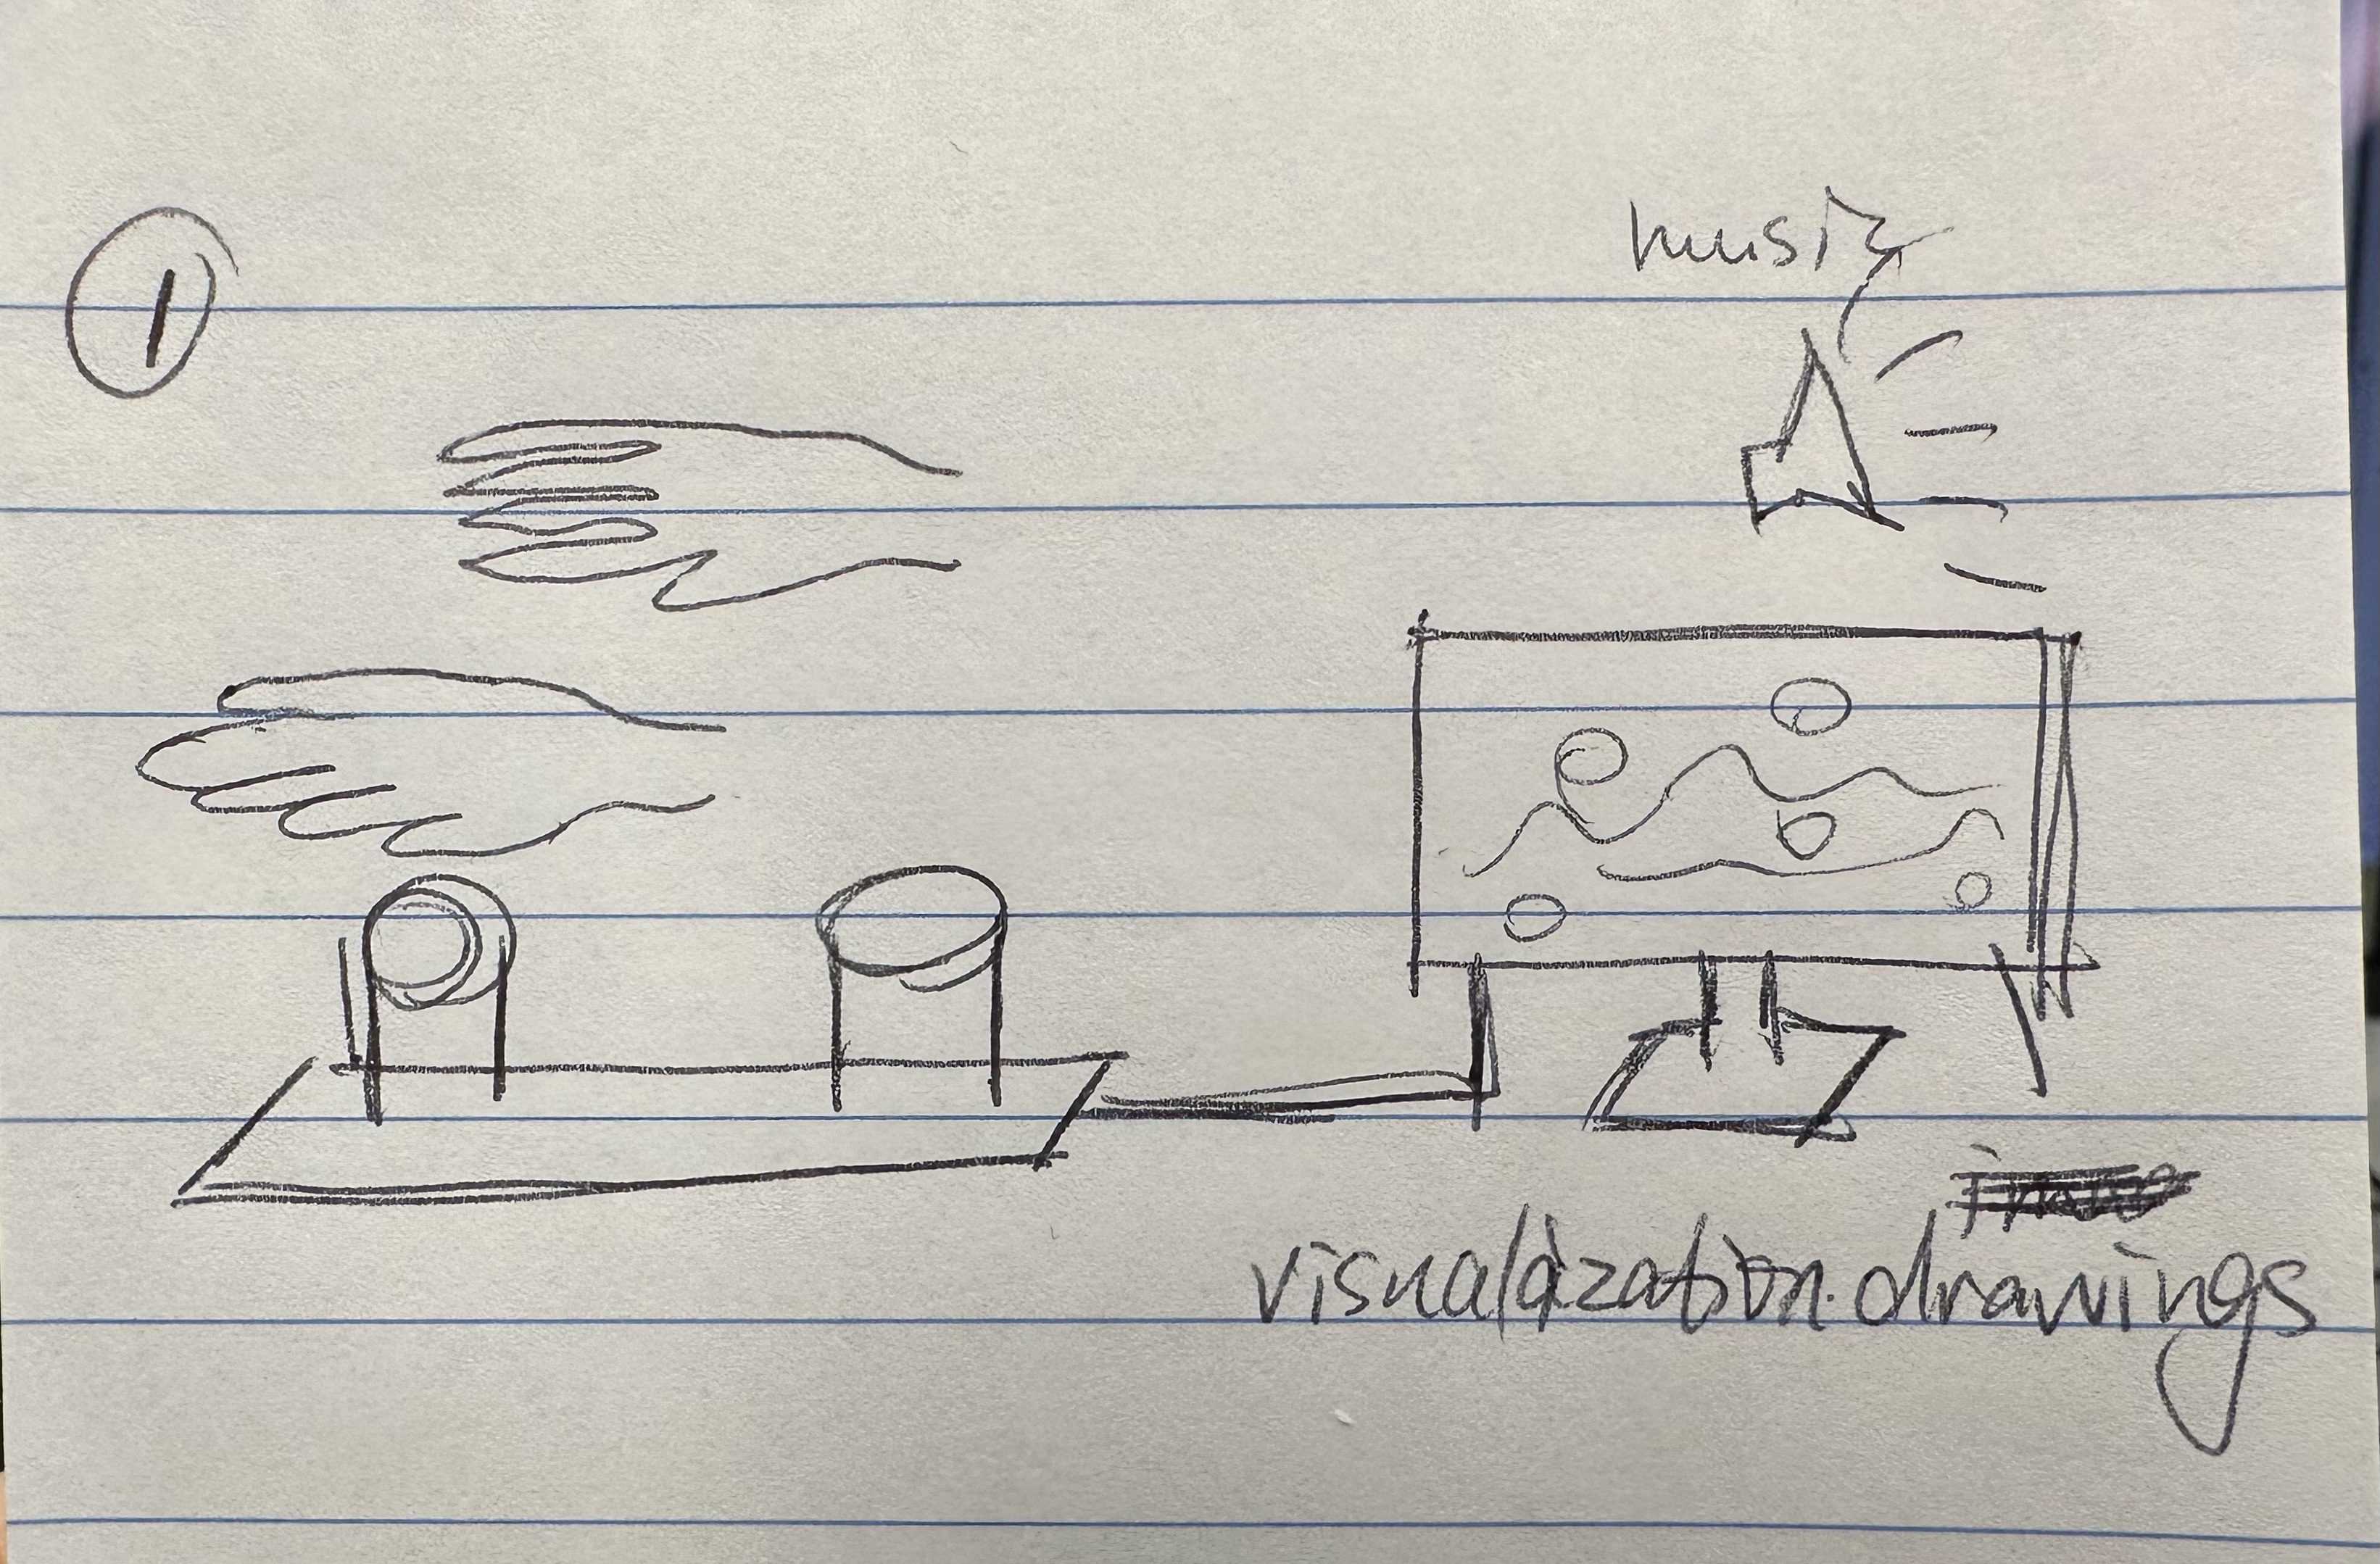 1
music
visualization. drawings